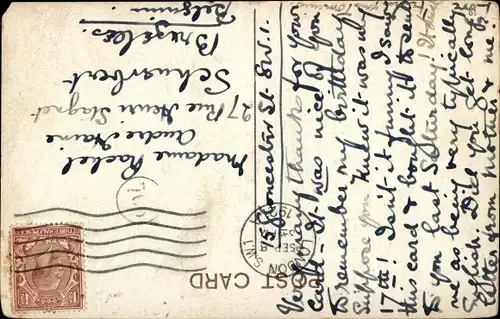 POST CARD
THREE HALFPENCE
LONDON
S.W.1
SEP
15 Gloucester St. S.W.1.
Very many thanks for your
card - It was nice of you
to remember my birthday
Suppose you knew it was why
17th! Isn't it funny I saw
this card & bought it to send
to you last Saturday! It struck
me as being very typically
English. Did you get long
letter from mother & me.
Madame Rachel
André Haine
27 Rue Henri
Schaerbeek
Bruxelles.
Belgium.